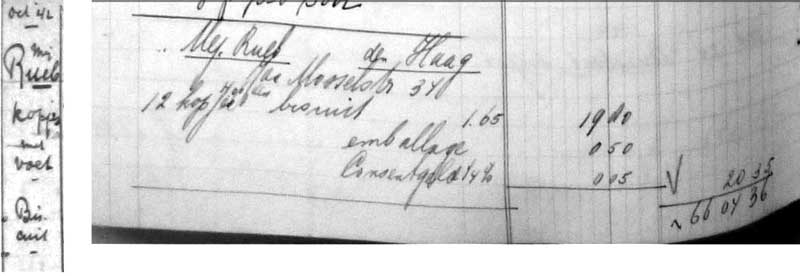 oct 42
Mej
Rueb
kopjes
met
voet
Bis
cuit
Mej. Rueb den Haag
34
12 kop biscuit 1.65 19 80
emballage 0 50
Consentgeld 1/4% 0 05
20 35
66 04 36